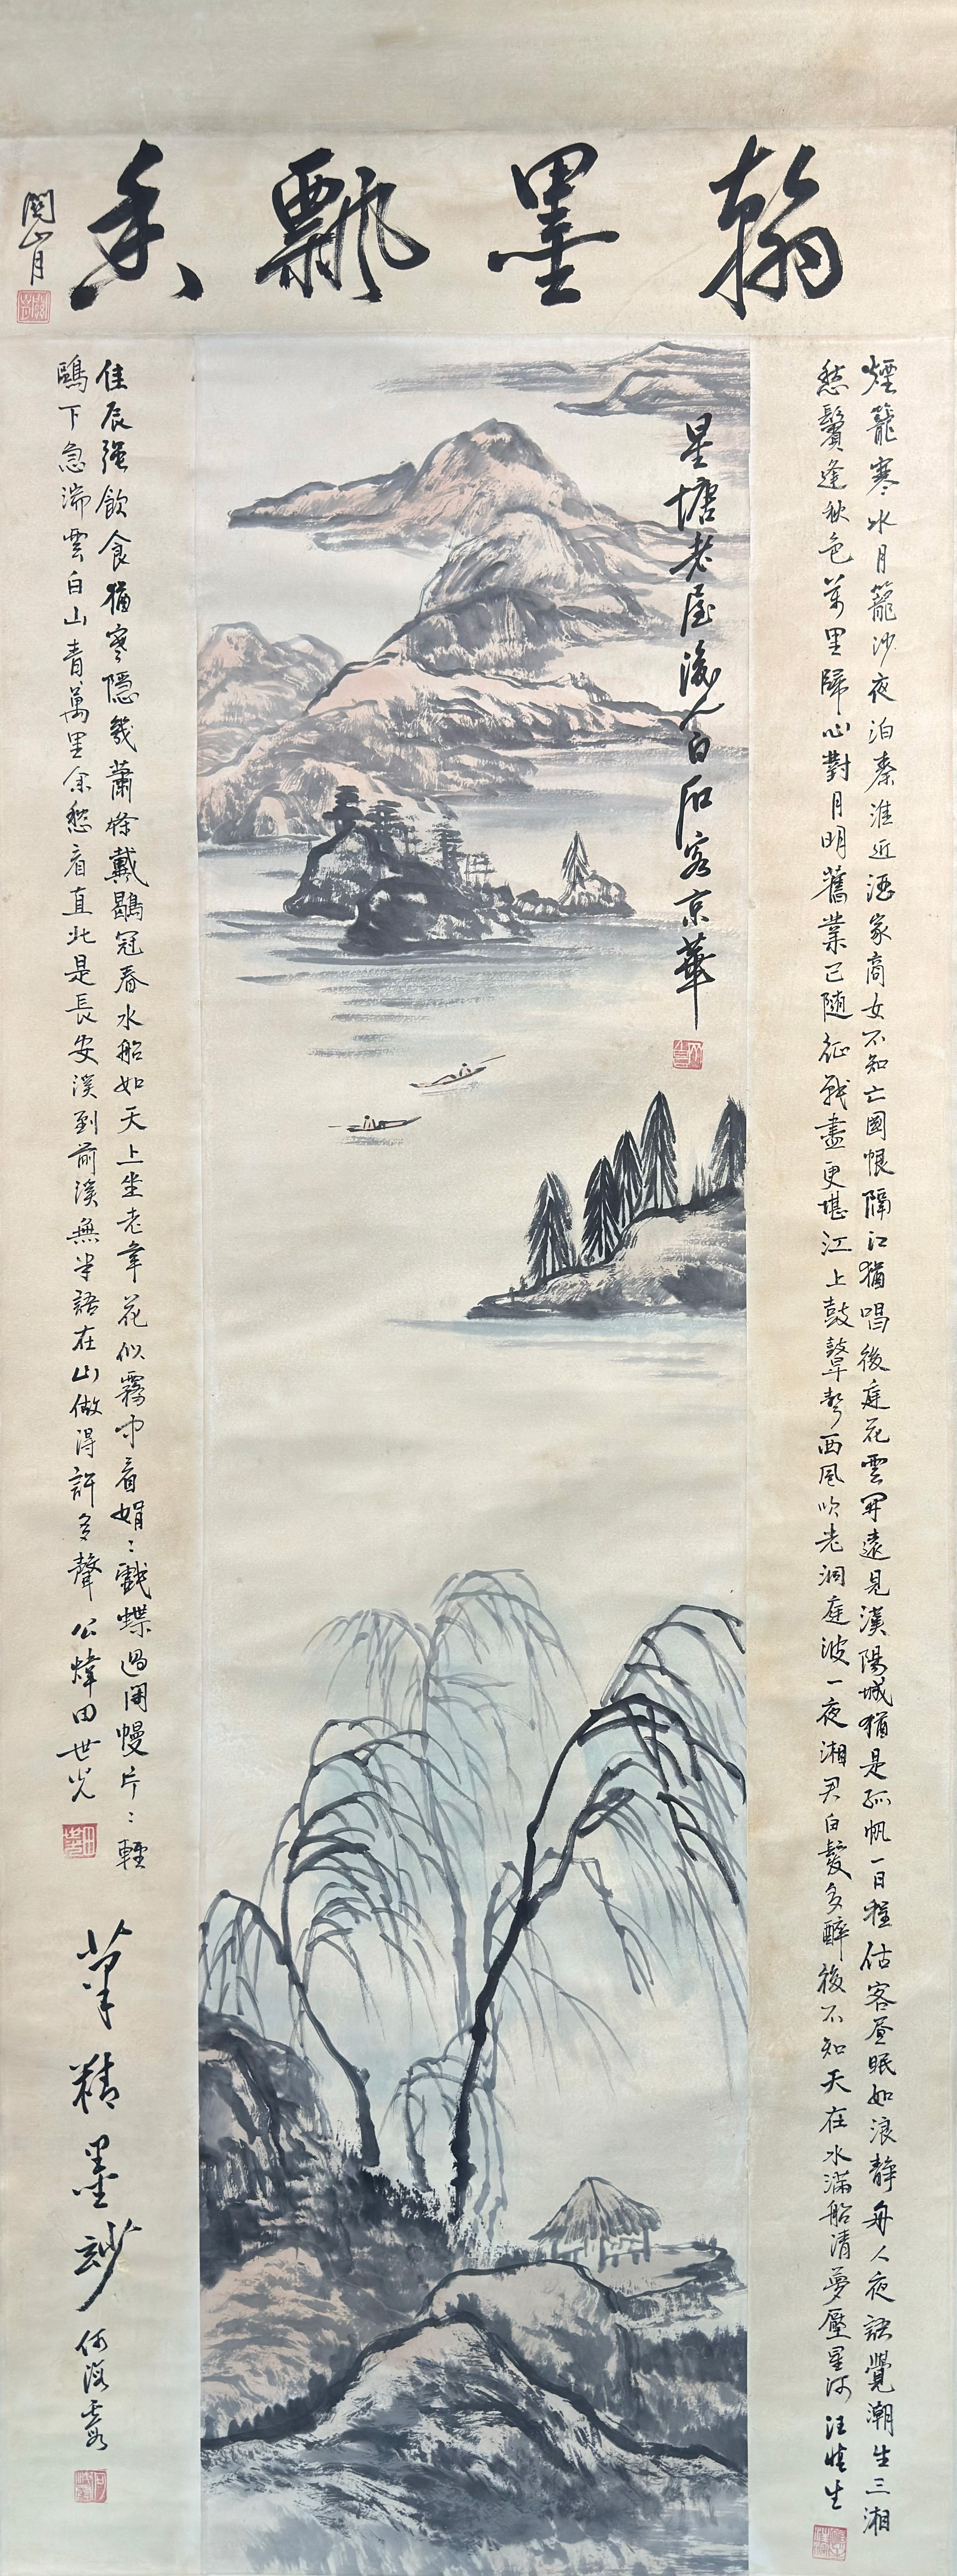 翰墨飄香
關山月
煙籠寒水月籠沙夜泊秦淮近酒家商女不知亡國恨隔江猶唱後庭花雲開遠見漢陽城猶是孤帆一日程估客晝眠知浪靜舟人夜語覺潮生三湘
愁鬢逢秋色萬里歸心對月明舊業已隨征戰盡更堪江上鼓鼙聲西風吹老洞庭波一夜湘君白髮多醉後不知天在水滿船清夢壓星河 汪慎生
星塘老屋後人白石客京華
佳辰強飲食猶寒隱几蕭條戴鶡冠春水船如天上坐老年花似霧中看娟〻戲蝶過閒幔片〻輕
鷗下急湍雲白山青萬里餘愁看直北是長安溪到前溪無半語在山做得許多聲 公煒田世光
筆精墨妙
何海霞